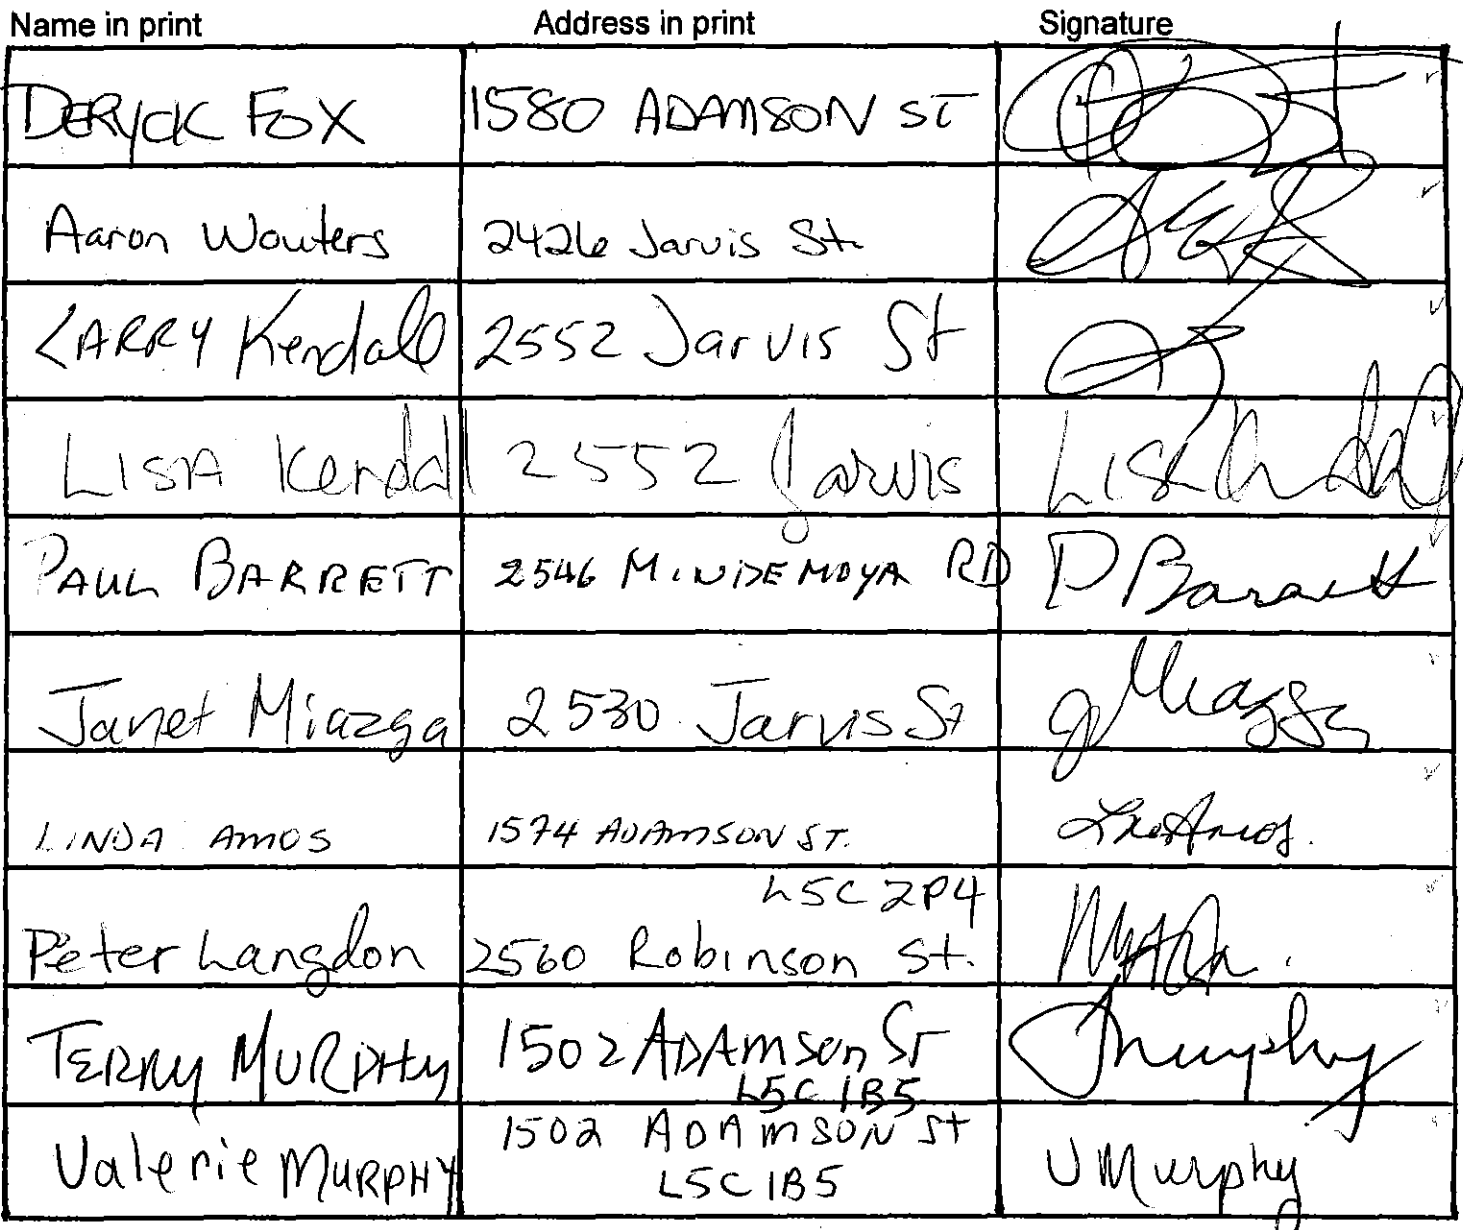 Name in print Address in print Signature
DERYCK FOX 1580 ADAMSON ST
Aaron Wouters 2426 Jarvis St.
LARRY Kendall 2552 Jarvis St
LISA Kendall 2552 Jarvis Lisa Kendall
PAUL BARRETT 2546 MINDEMOYA RD P Barrett
Janet Miazga 2530 Jarvis St J Miazga
LINDA AMOS 1574 ADAMSON ST.
L5C 2P4
Peter Langdon 2560 Robinson St.
TERRY MURPHY 1502 ADAMSON ST T Murphy
L5C 1B5
1502 ADAMSON St
Valerie MURPHY L5C 1B5 V Murphy